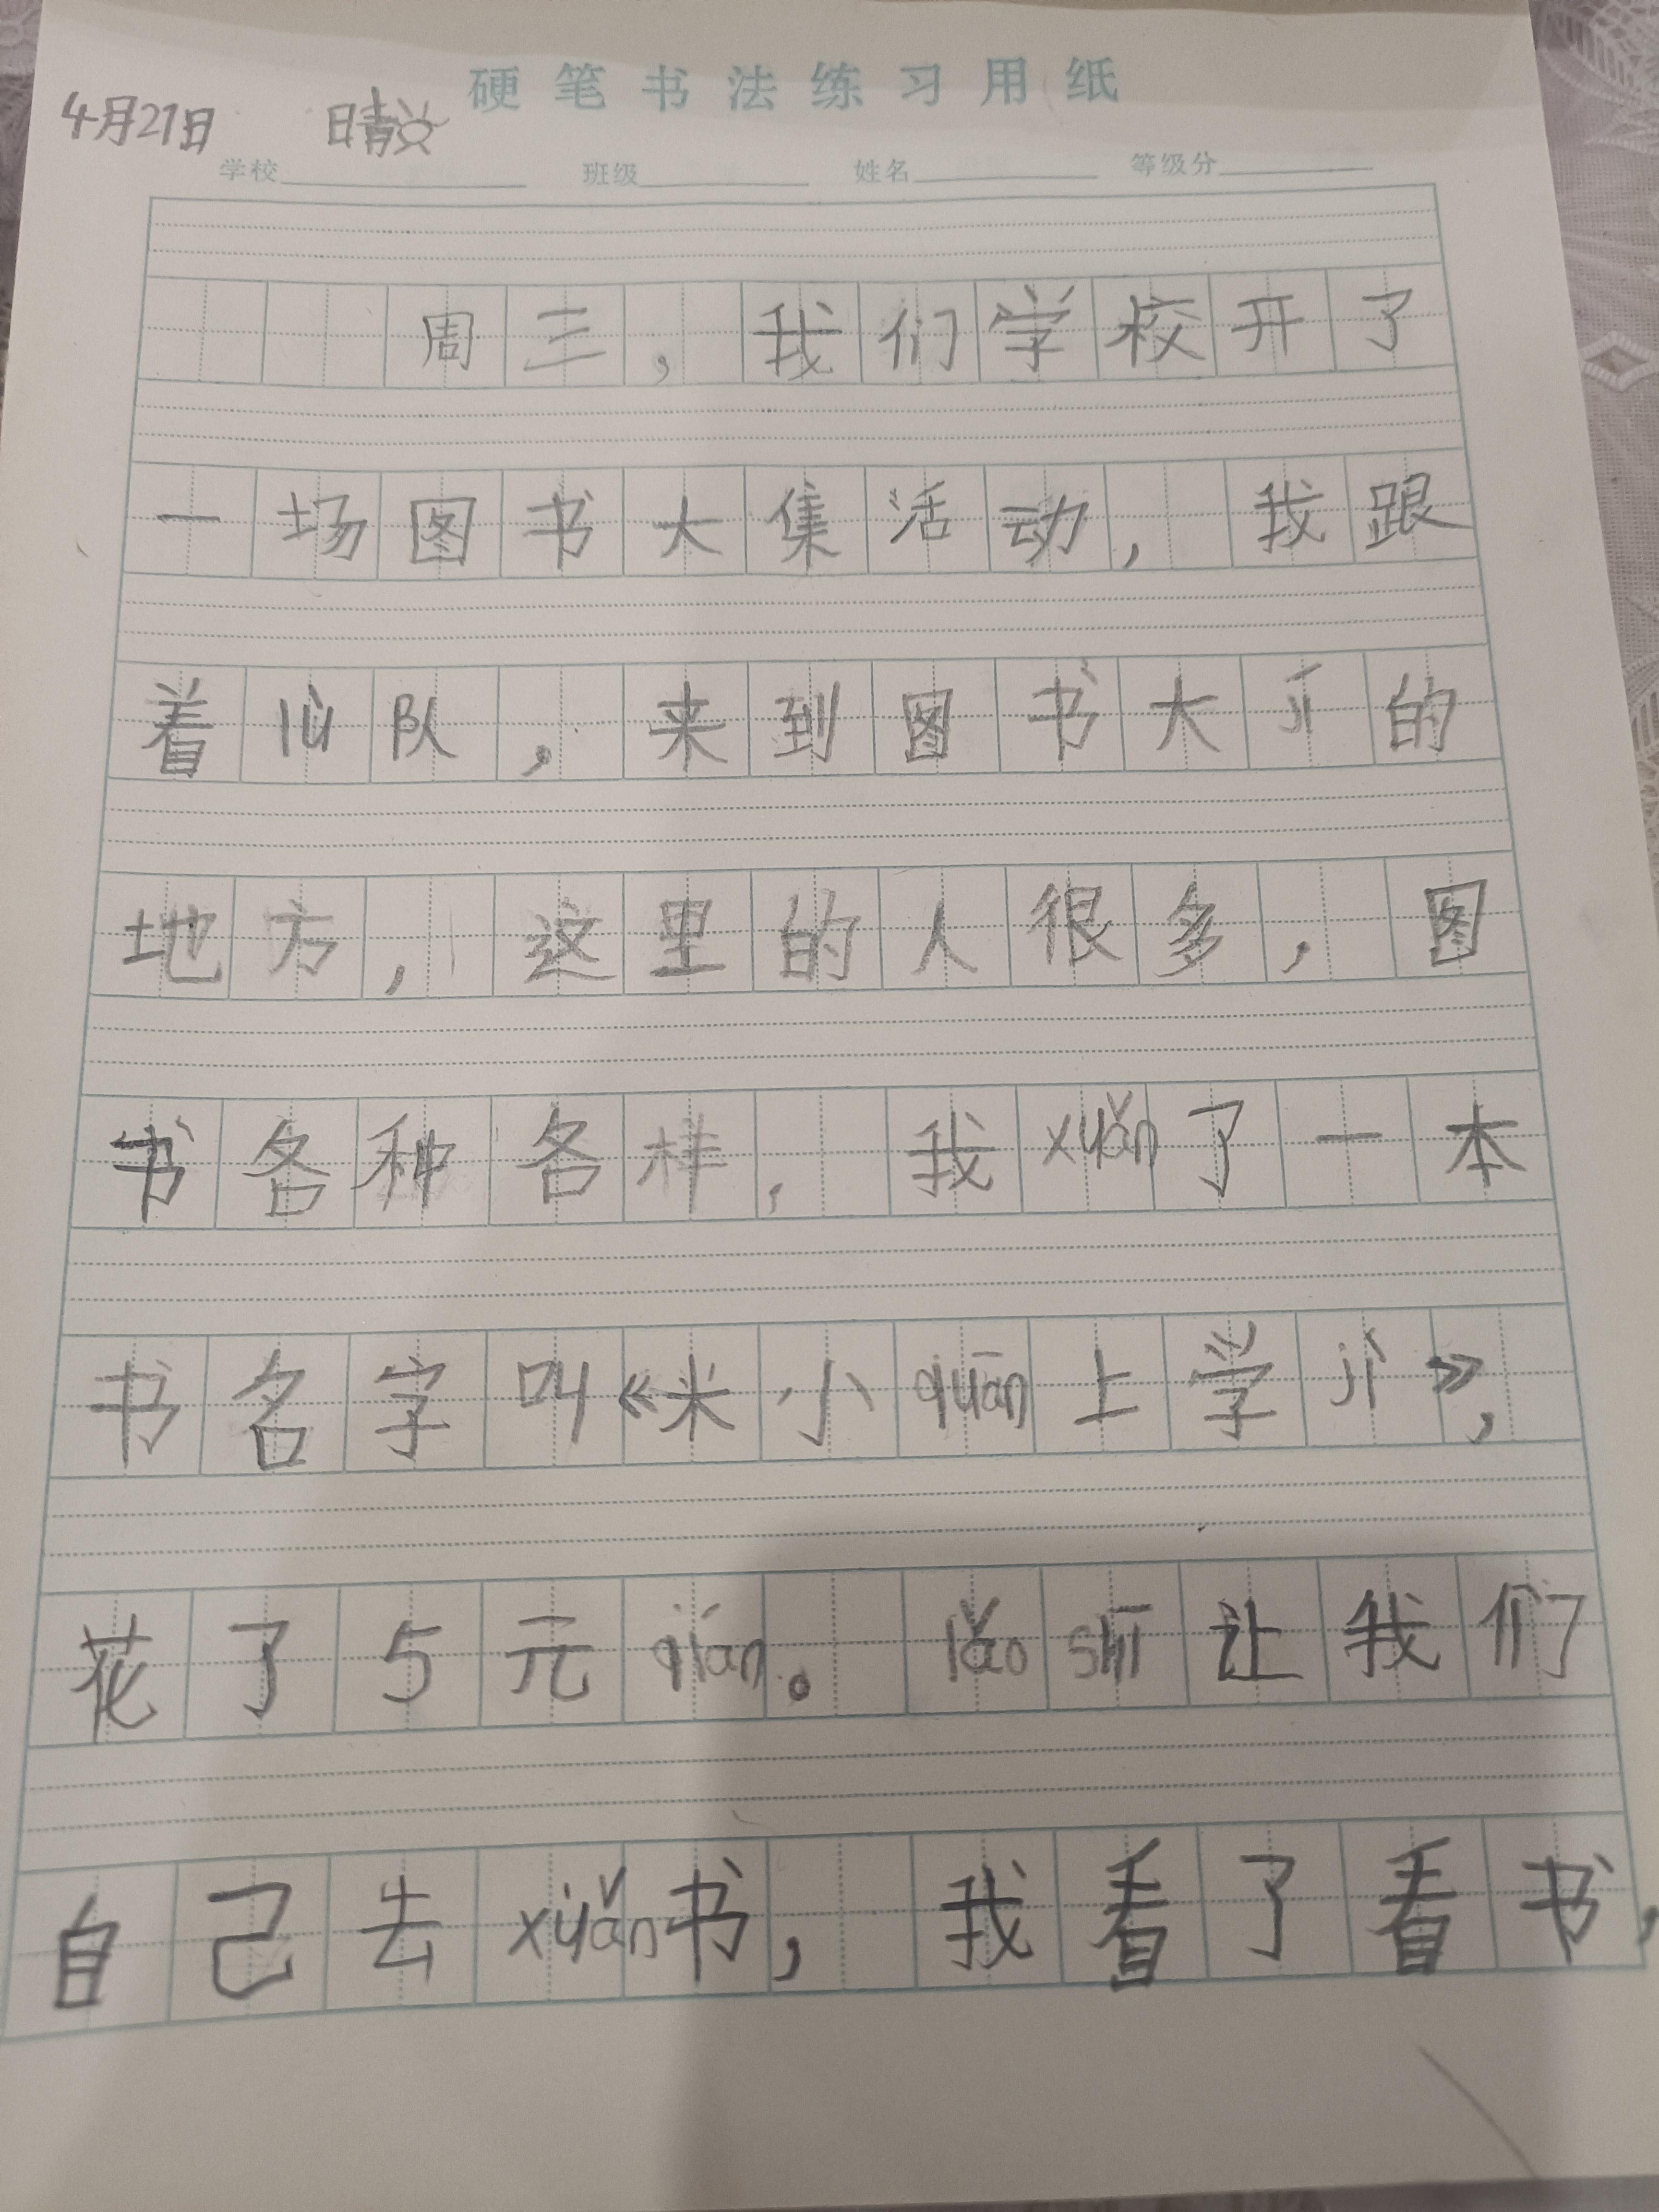 硬笔书法练习用纸
4月21日 晴
学校 班级 姓名 等级分
周三，我们学校开了
一场图书大集活动，我跟
着lù队，来到图书大jī的
地方，这里的人很多，图
书各种各样，我xuǎn了一本
书名字叫《米小qüān上学jì》，
花了5元qián。lǎo shī让我们
自己去xuǎn书，我看了看书，